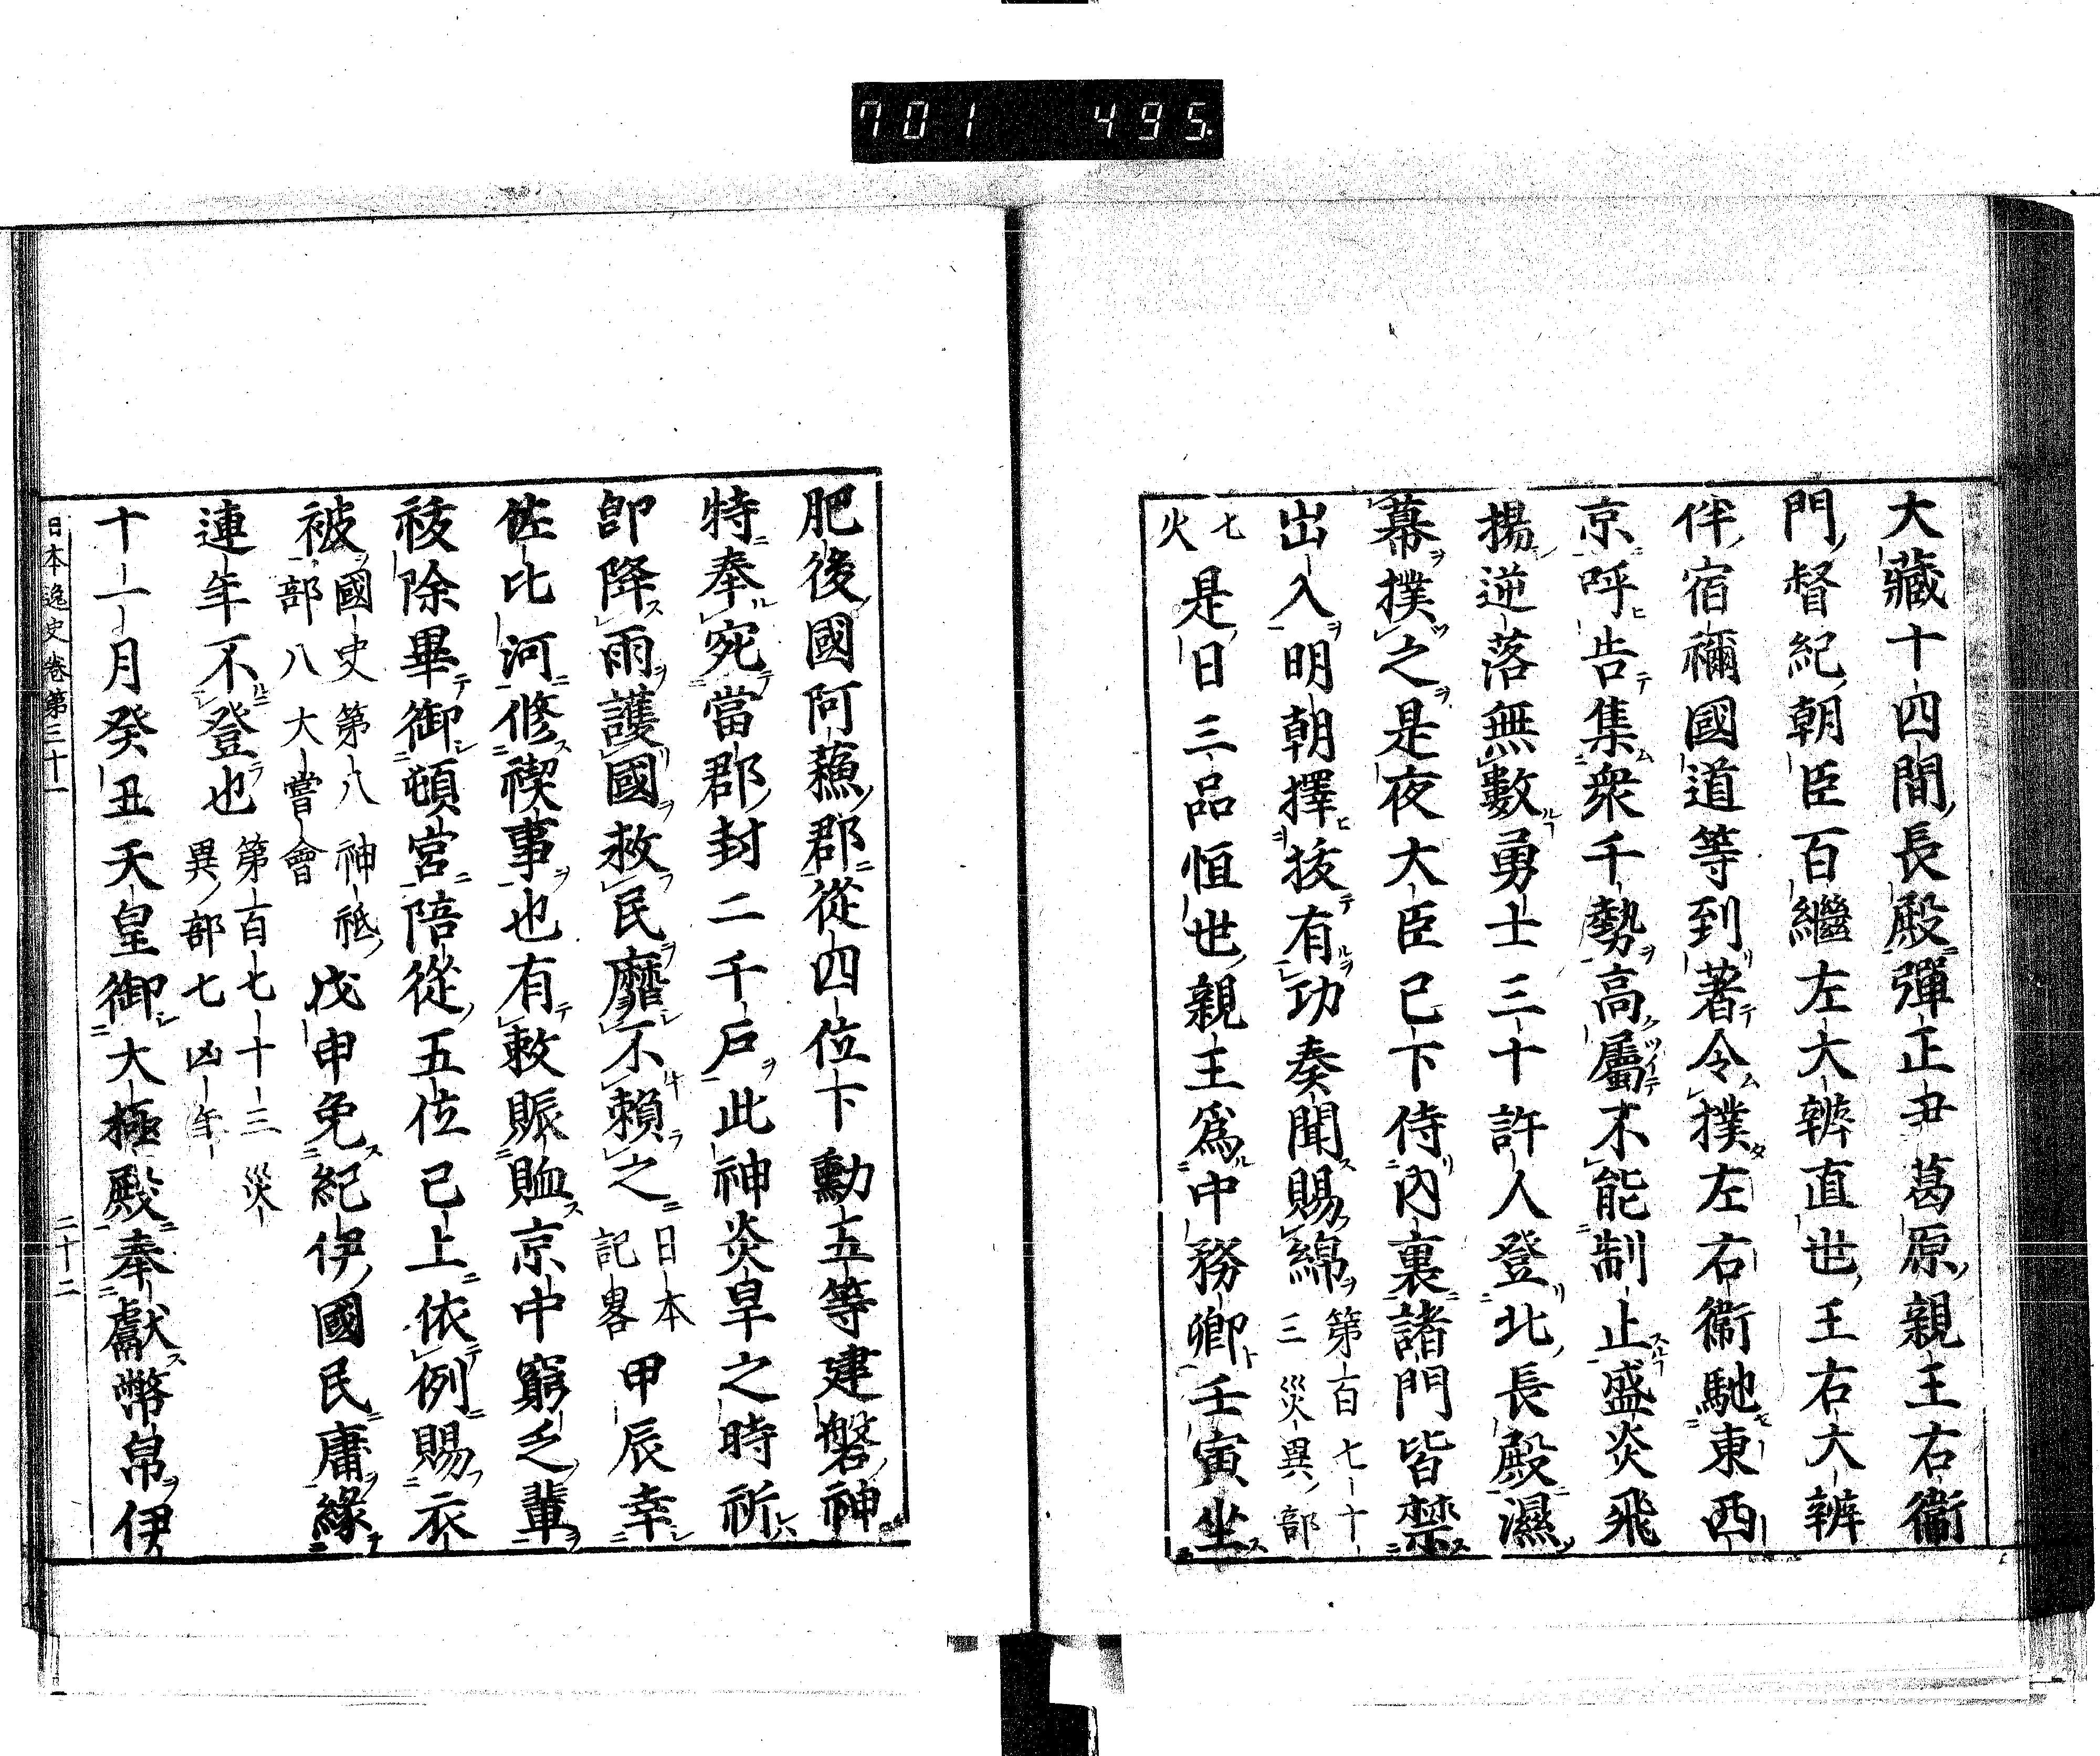 701 495
大藏十四間長殿彈正尹葛原親王右衞
門督紀朝臣百繼左大辨直世王右大辨
伴宿禰國道等到著令撲左右衞馳東西
京呼告集衆千勢高屬不能制止盛炎飛
揚逆落無數勇士三十許人登北長殿濕
幕撲之是夜大臣已下侍內裏諸門皆禁
出入明朝擇拔有功奏聞賜綿第百七十
三災異部
七
火
是日三品恒世親王爲中務卿壬寅坐
肥後國阿蘓郡從四位下勳五等建磐神
特奉宛當郡封二千戶此神炎旱之時祈
卽降雨護國救民靡不賴之日本
記畧
甲辰幸
佐比河修禊事也有敕賑䘏京中窮乏輩
祓除畢御頓宮陪從五位已上依例賜衣
被國史第八神祇
部八大嘗會
戊申免紀伊國民庸緣
連年不登也第百七十三災
異部七凶年
十一月癸丑天皇御大極殿奉獻幣帛伊
日本逸史卷第三十一
二十二